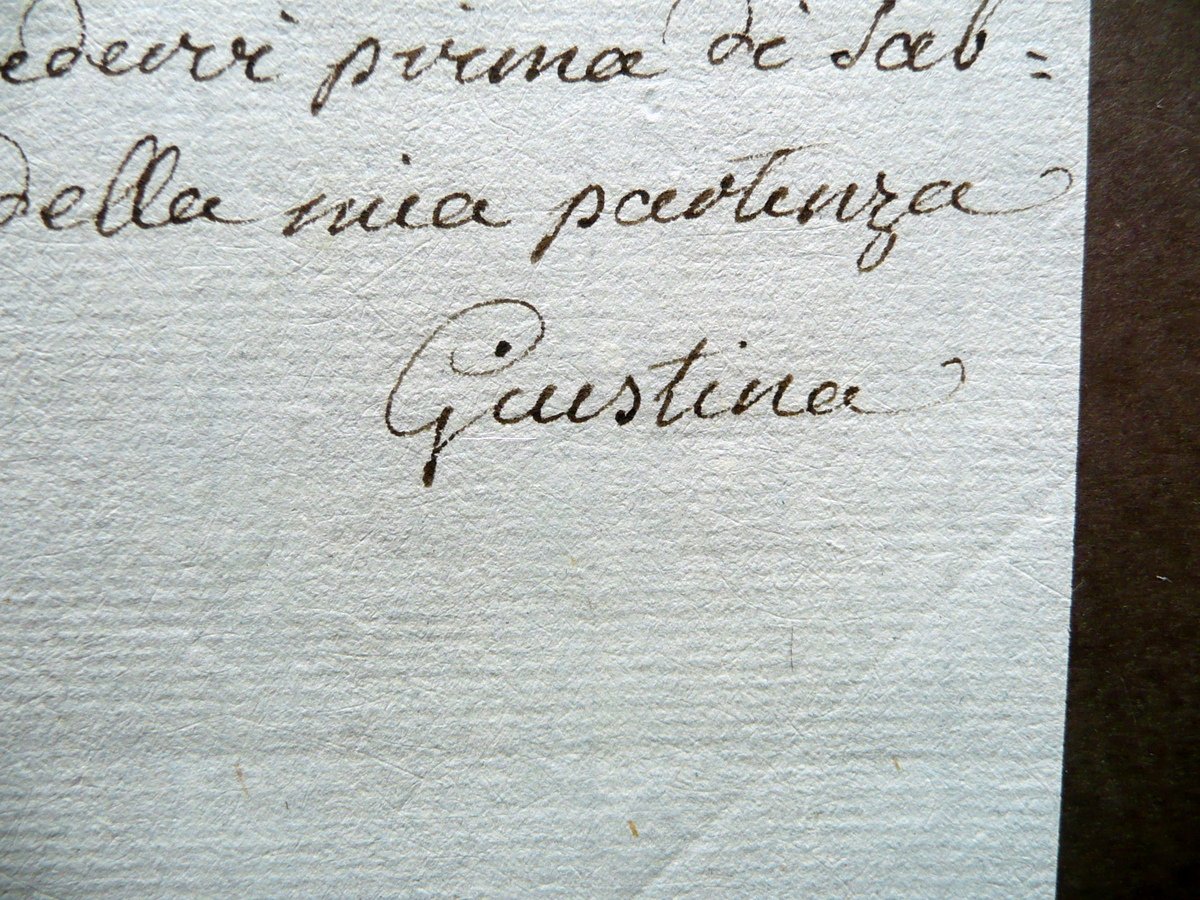 edervi prima di Sab=
della mia partenza
Giustina